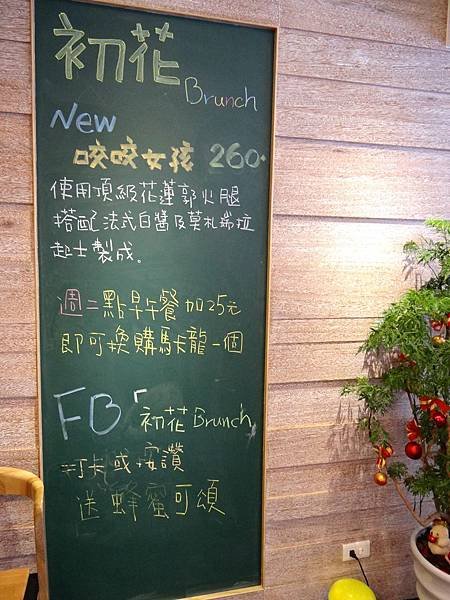 初花
Brunch
New
咬咬女孩 260.
使用頂級花蓮郭火腿
搭配法式白醬及莫札瑞拉
起士製成.
週二點早午餐加25元
即可換購馬卡龍一個
FB「初花Brunch」
打卡或按讚
送蜂蜜可頌